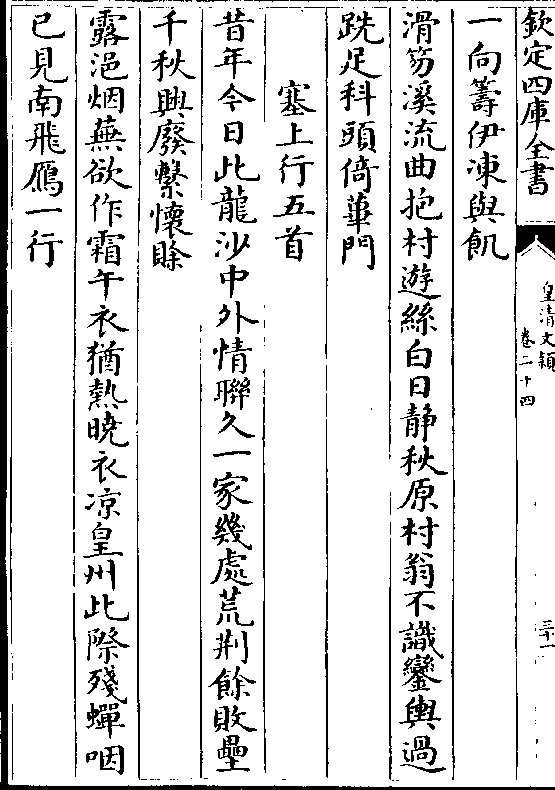 欽定四庫全書
皇清文穎
卷二十四
三十一
一向籌伊凍與飢
滑笏溪流曲抱村遊絲白日静秋原村翁不識鑾輿過
跣足科頭倚蓽門
塞上行五首
昔年今日此龍沙中外情聯久一家幾處荒荆餘敗壘
千秋興廢繫懷賒
露浥烟蕪欲作霜午衣猶熱曉衣凉皇州此際殘蟬咽
已見南飛鴈一行